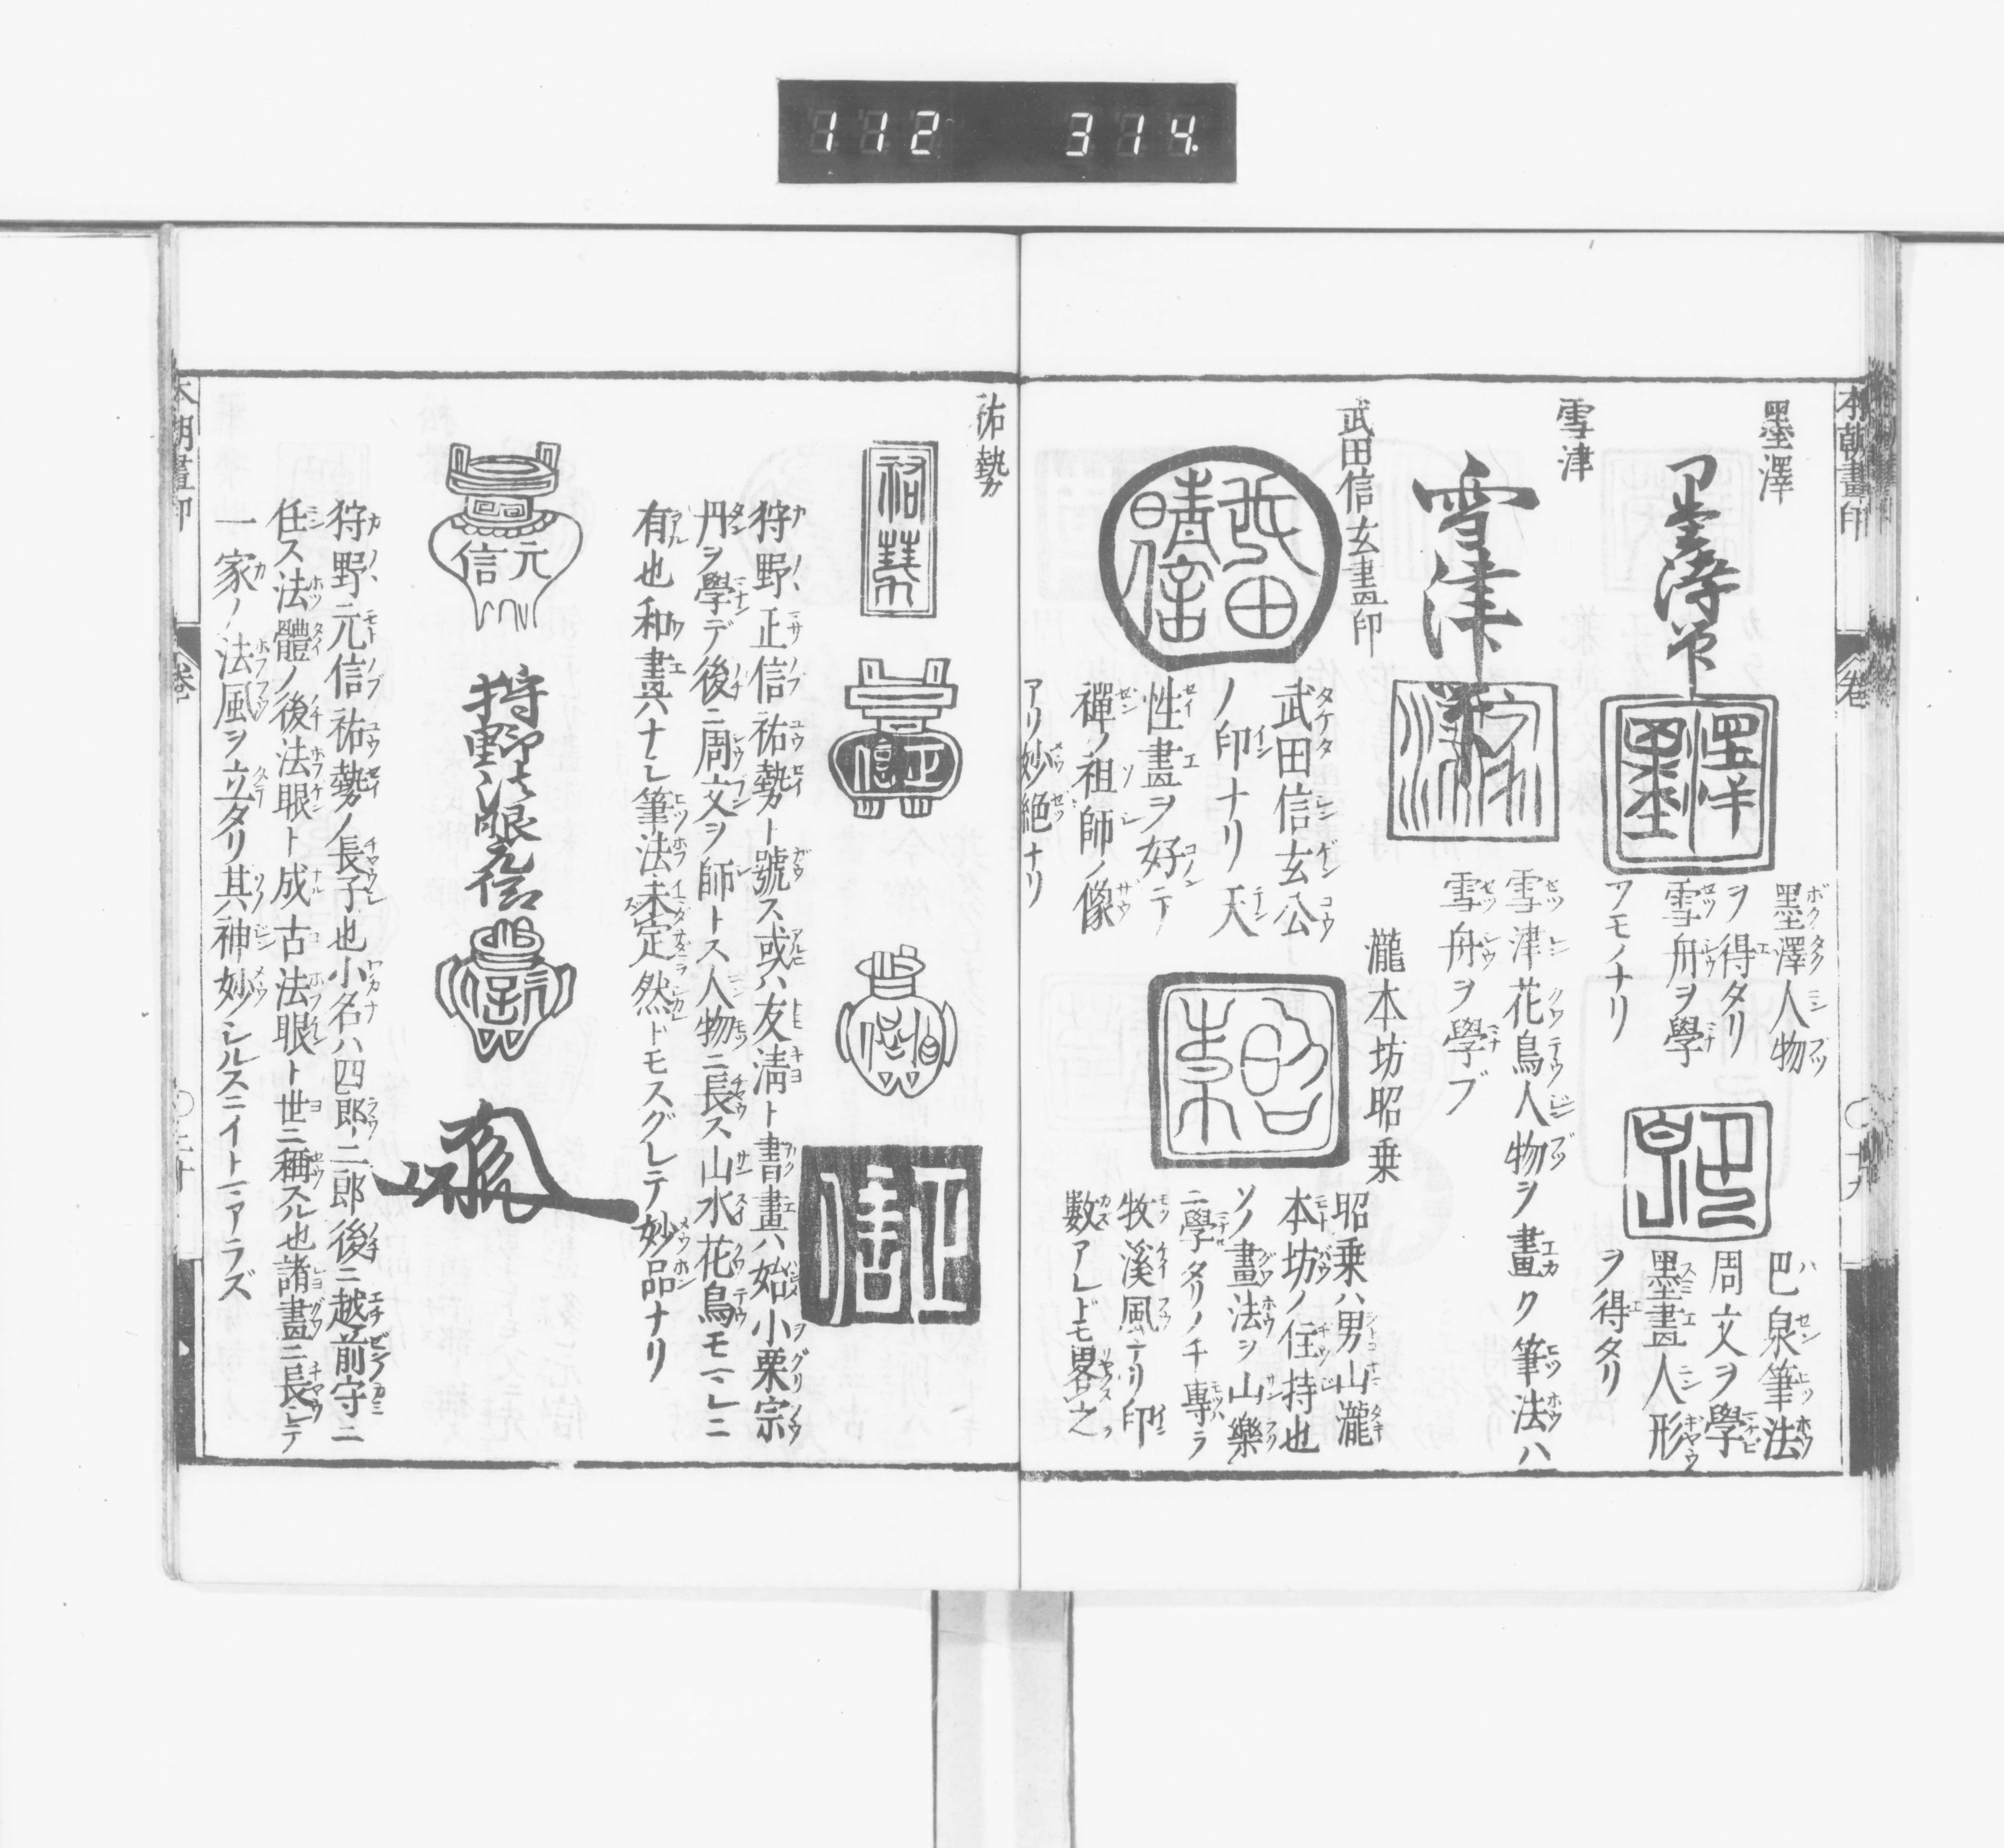 112 314
本朝畫印
卷
墨澤
墨澤筆
墨澤人物
ヲ得タリ
雪舟ヲ學
フモノナリ
巴泉筆法
周文ヲ學
墨畫人形
ヲ得タリ
雪津
雪津
雪津花鳥人物ヲ畫ク筆法ハ
雪舟ヲ學ブ
武田信玄畫印
武田
晴信
武田信玄公
ノ印ナリ天
性畫ヲ好テ
禪ノ祖師ノ像
アリ妙絶ナリ
瀧本坊昭乗
昭乗ハ男山瀧
本坊ノ住持也
ソノ畫法ヲ山樂
ニ學タリノチ專ラ
牧溪風ナリ印
數アレドモ畧之
祐勢
祐勢
正信
正信
狩野正信祐勢ト號ス或ハ友清ト書畫ハ始小栗宗
丹ヲ學デ後ニ周文ヲ師トス人物ニ長ス山水花鳥モマレニ
有也和畫ハナシ筆法未定然ドモスグレテ妙品ナリ
元信
狩野法眼元信
狩野元信祐勢ノ長子也小名ハ四郎二郎後ニ越前守ニ
任ス法體ノ後法眼ト成古法眼ト世ニ稱スル也諸畫ニ長シテ
一家ノ法風ヲ立タリ其神妙シルスニイトマアラズ
本朝畫印
卷